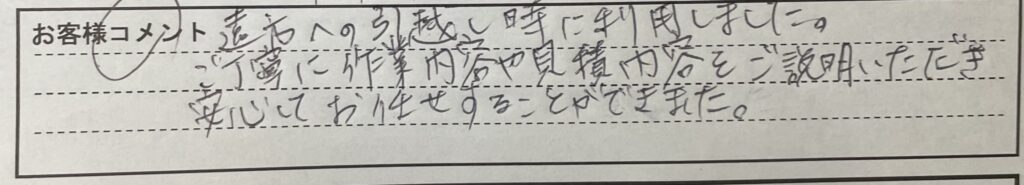 お客様コメント 遠方への引越し時に利用しました。
ご丁寧に作業内容や見積内容をご説明いただき
安心してお任せすることができました。